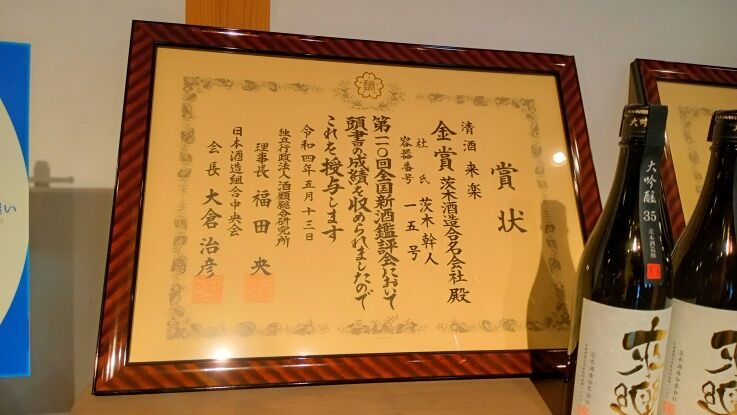 賞状
清酒 来楽
金賞 茨木酒造合名会社 殿
杜氏 茨木幹人
容器番号 一五号
第一一〇回全国新酒鑑評会において
頭書の成績を収められましたので
これを授与します
令和四年五月十三日
独立行政法人酒類総合研究所
理事長 福田央
日本酒造組合中央会
会長 大倉治彦
大吟醸 35 茨木酒造醸
来楽
茨木酒造合名会社
大吟